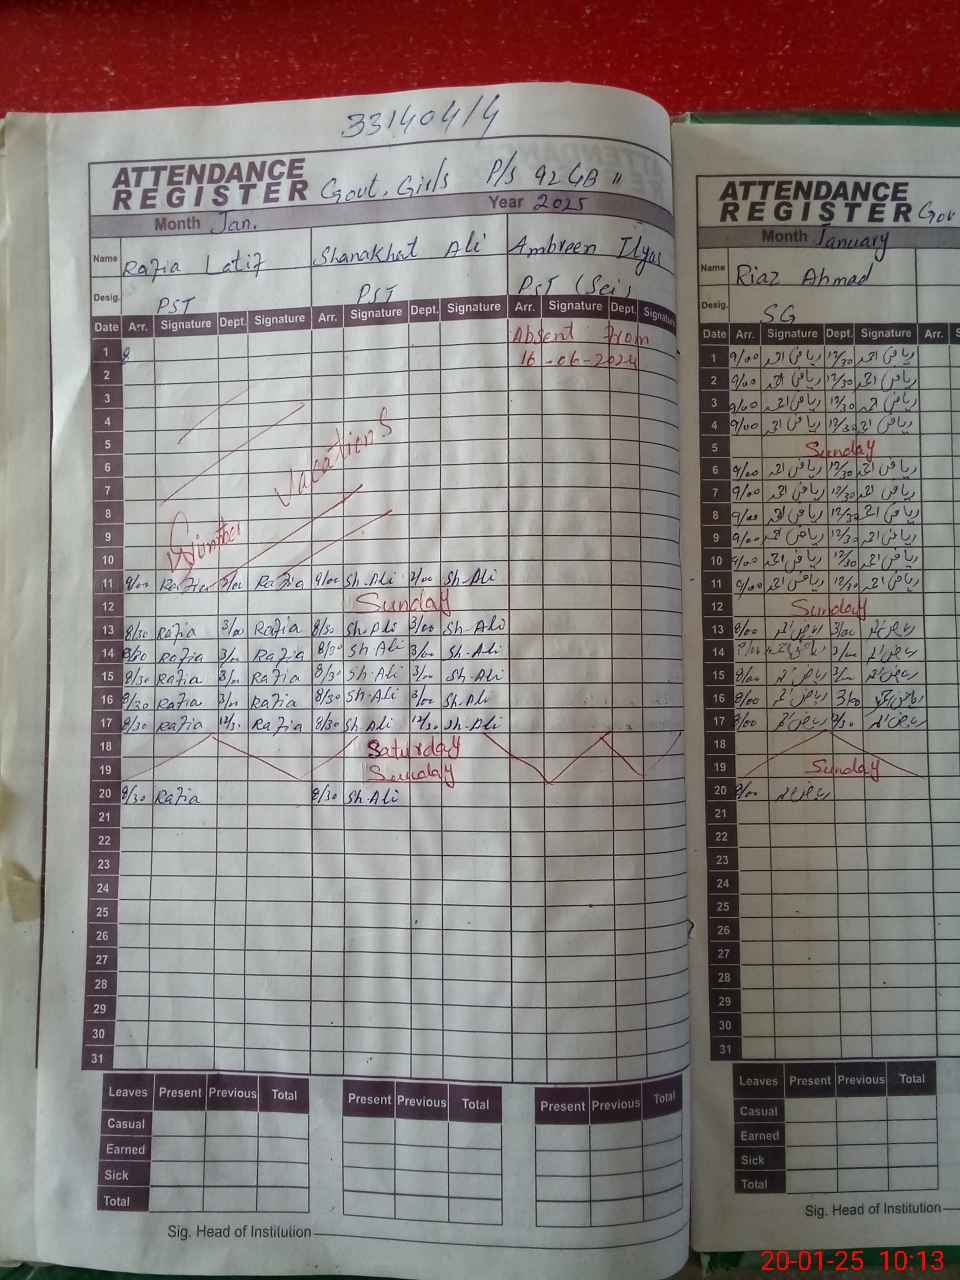 331404/4
ATTENDANCE
REGISTER Govt. Girls P/s 92 GB "
Month Jan. Year 2025
Name Razia Latif Shanakhat Ali Ambreen Ilyas
Desig. PST PST PST (Sei)
Date Arr. Signature Dept. Signature Arr. Signature Dept. Signature Arr. Signature Dept. Signature
1 Absent From
16-06-2024
2
3
4
5
6
7
8
9
10
Winter Vacations
11 9/00 Razia 2/00 Razia 9/00 Sh.Ali 2/00 Sh.Ali
12 Sunday
13 8/30 Razia 3/00 Razia 8/30 Sh.Ali 3/00 Sh.Ali
14 8/30 Razia 3/00 Razia 8/30 Sh.Ali 3/00 Sh.Ali
15 8/30 Razia 3/00 Razia 8/30 Sh.Ali 3/00 Sh.Ali
16 8/30 Razia 3/00 Razia 8/30 Sh.Ali 3/00 Sh.Ali
17 8/30 Razia 12/30 Razia 8/30 Sh.Ali 12/30 Sh.Ali
18 Saturday
19 Sunday
20 8/30 Razia 8/30 Sh.Ali
21
22
23
24
25
26
27
28
29
30
31
Leaves Present Previous Total Present Previous Total Present Previous Total
Casual
Earned
Sick
Total
Sig. Head of Institution
ATTENDANCE
REGISTER Gov
Month January
Name Riaz Ahmad
Desig. SG
Date Arr. Signature Dept. Signature Arr. S
1 9/00 ریاض احمد 12/30 ریاض احمد
2 9/00 ریاض احمد 12/30 ریاض احمد
3 9/00 ریاض احمد 12/30 ریاض احمد
4 9/00 ریاض احمد 12/30 ریاض احمد
5 Sunday
6 9/00 ریاض احمد 12/30 ریاض احمد
7 9/00 ریاض احمد 12/30 ریاض احمد
8 9/00 ریاض احمد 12/30 ریاض احمد
9 9/00 ریاض احمد 12/30 ریاض احمد
10 9/00 ریاض احمد 12/30 ریاض احمد
11 9/00 ریاض احمد 12/30 ریاض احمد
12 Sunday
13 8/00 ریاض احمد 3/00 ریاض احمد
14 ریاض احمد 3/00 ریاض احمد
15 8/00 ریاض احمد 3/00 ریاض احمد
16 8/00 ریاض احمد 3/00 ریاض احمد
17 8/00 ریاض احمد ریاض احمد
18
19 Sunday
20 8/00 ریاض احمد
21
22
23
24
25
26
27
28
29
30
31
Leaves Present Previous Total
Casual
Earned
Sick
Total
Sig. Head of Institution
20-01-25 10:13